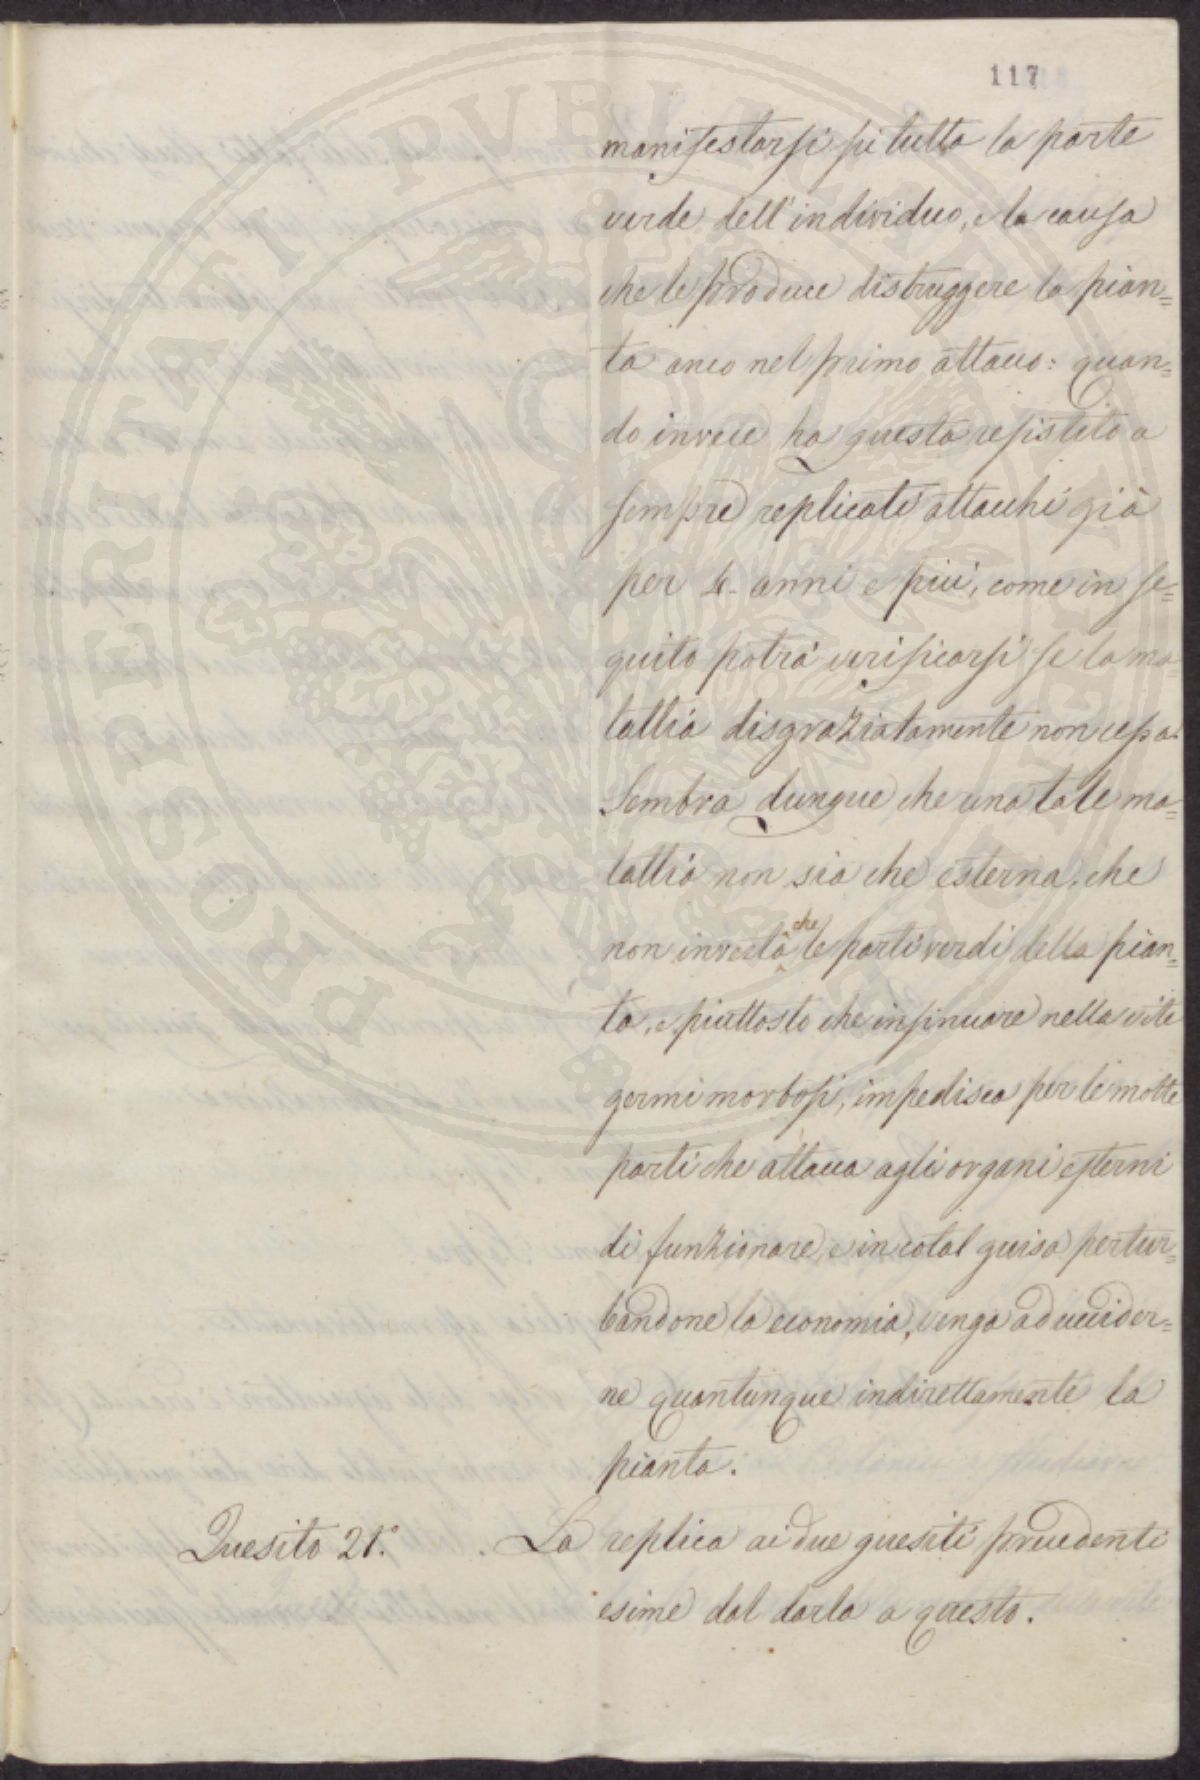 117
manifestarsi sù tutta la parte
verde dell'individuo, e la causa
che le produce distruggere la pian=
ta anco nel primo attacco: quan=
do invece ha questa resistito a
sempre replicati attacchi già
per 4. anni e più, come in se=
guito potrà verificarsi se la ma=
lattia disgraziatamente non cessa.
Sembra dunque che una tale ma=
lattia non sia che esterna, che
non investa che le parti verdi della pian=
ta, e piuttosto che insinuare nella vite
germi morbosi, impedisca per le molte
parti che attacca agli organi esterni
di funzionare, e in cotal guisa pertur=
bandone la economia, venga ad uccider=
ne quantunque indirettamente la
pianta.
Quesito 21.° La replica ai due quesiti precedenti
esime dal darla a questo.
PROSPERITATI PVBLICAE